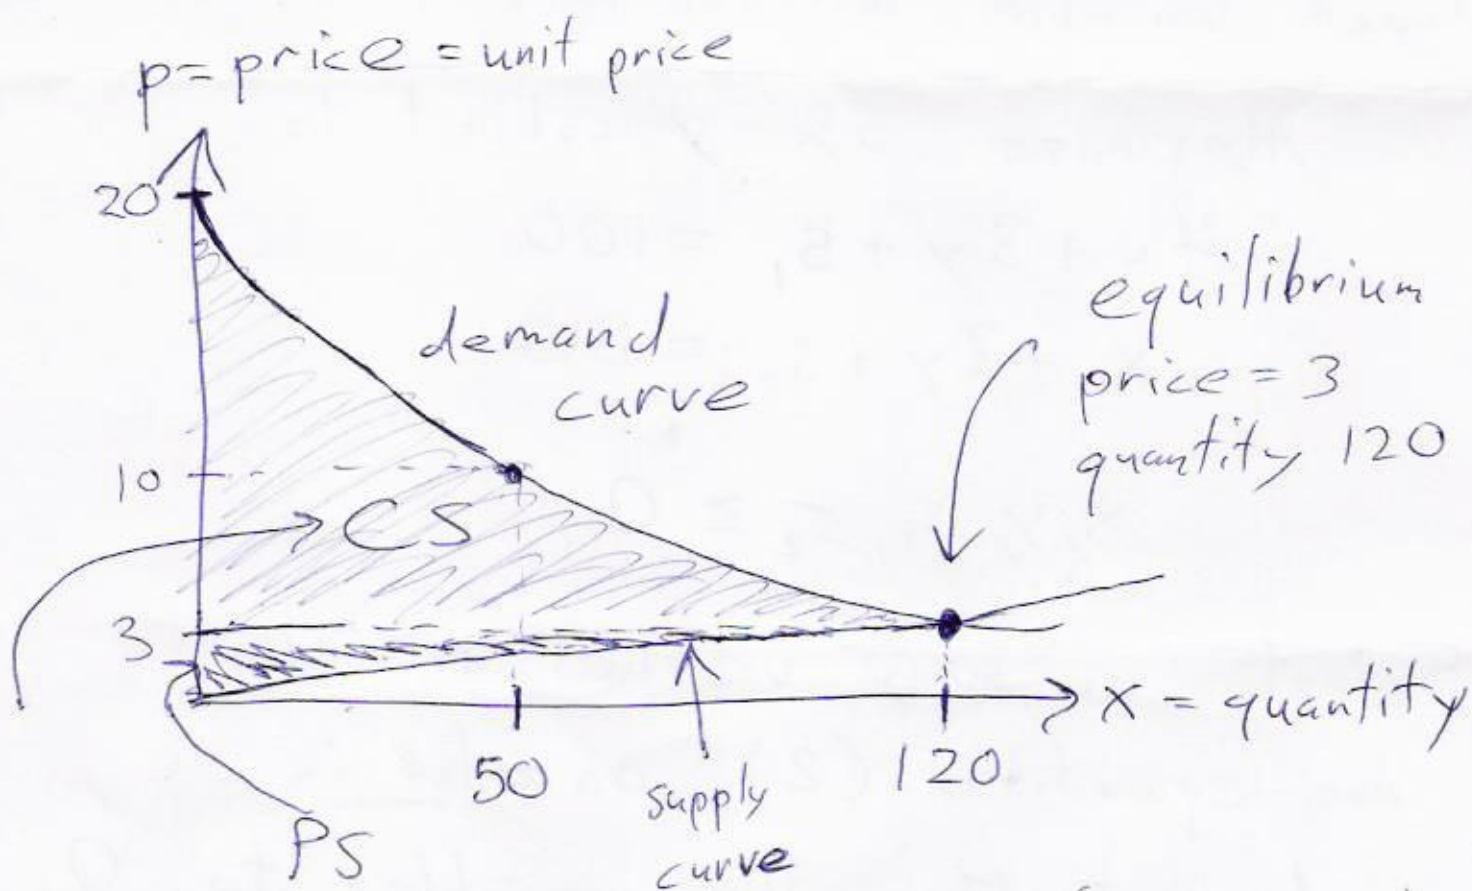 p = price = unit price
20
demand
curve
equilibrium
price = 3
quantity 120
10
CS
3
x = quantity
50
120
supply
curve
PS